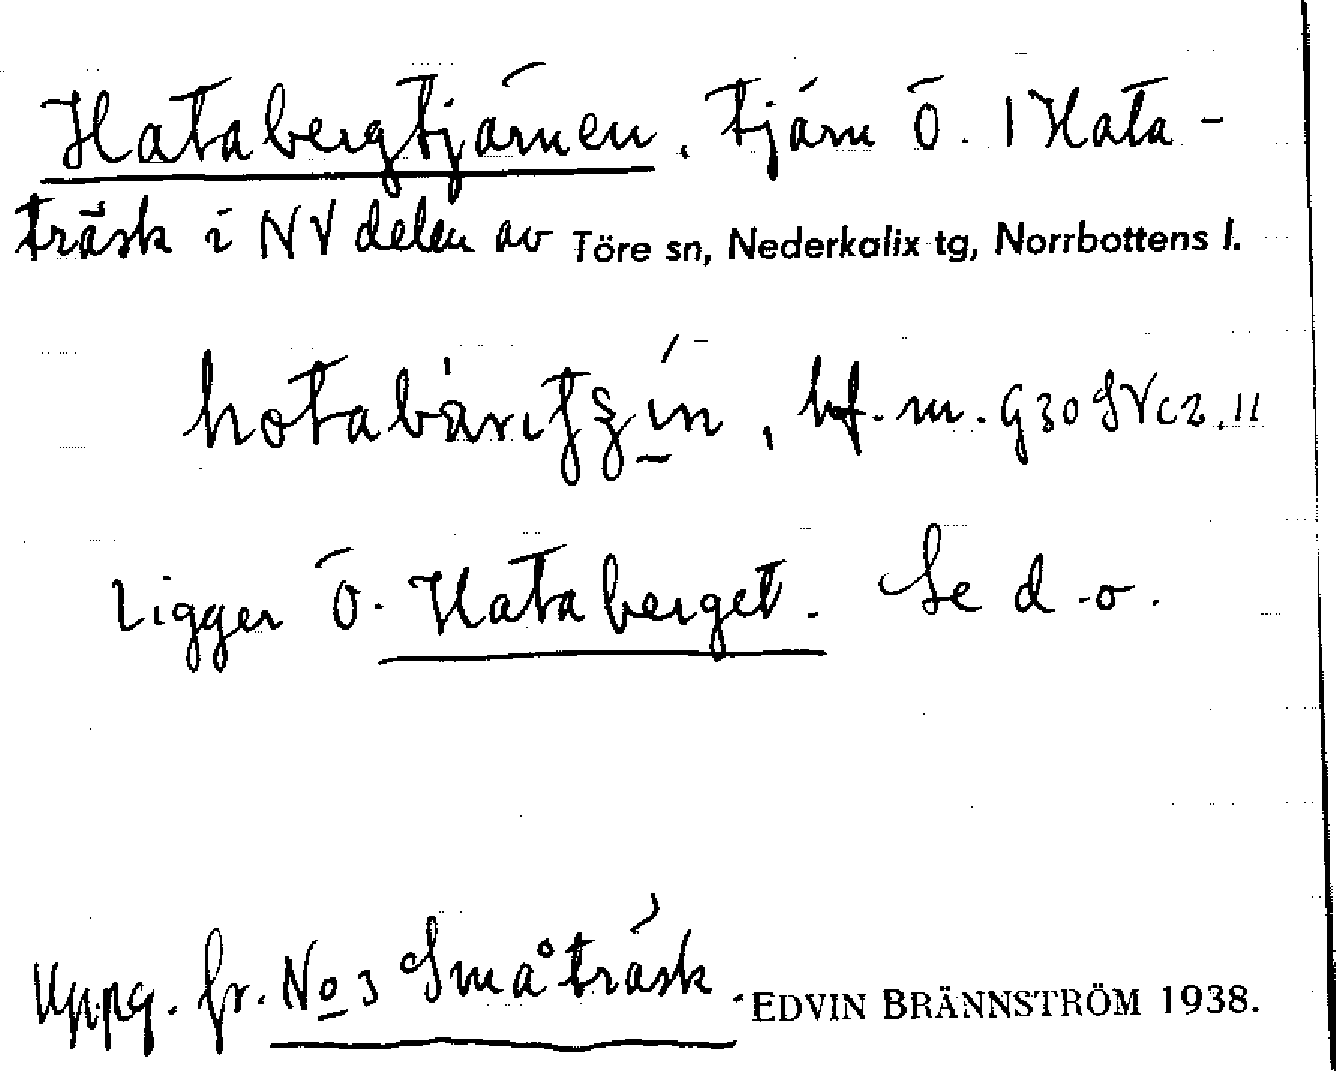 Hatabergtjärnen. Tjärn Ö. I Hata-
träsk i NV delen av Töre sn, Nederkalix tg, Norrbottens l.
hf. m. G30 SV c2, 11
Ligger Ö. Hataberget. Se d. o.
Uppg. fr. No 3 Småträsk. EDVIN BRÄNNSTRÖM 1938.